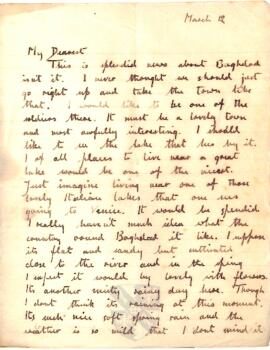 March 12
My Dearest
This is splendid news about Baghdad
isn't it. I never thought we should just
go right up and take the town like
that. I would like to be one of the
soldiers there. It must be a lovely town
and most awfully interesting. I should
like to in the lake that lies by it.
of all places to live near a great
lake would be one of the nicest.
Just imagine living near one of those
lovely Italian lakes that one sees
going to Venice. It would be splendid
I really haven't much idea what the
country round Baghdad is like. I suppose
its flat and sandy but cultivated
close to the river and in the spring
I expect it would by lovely with flowers.
Its another misty rainy day here. Though
I dont think its raining at this moment.
Its such nice soft spring rain and the
weather is so mild that I dont mind it